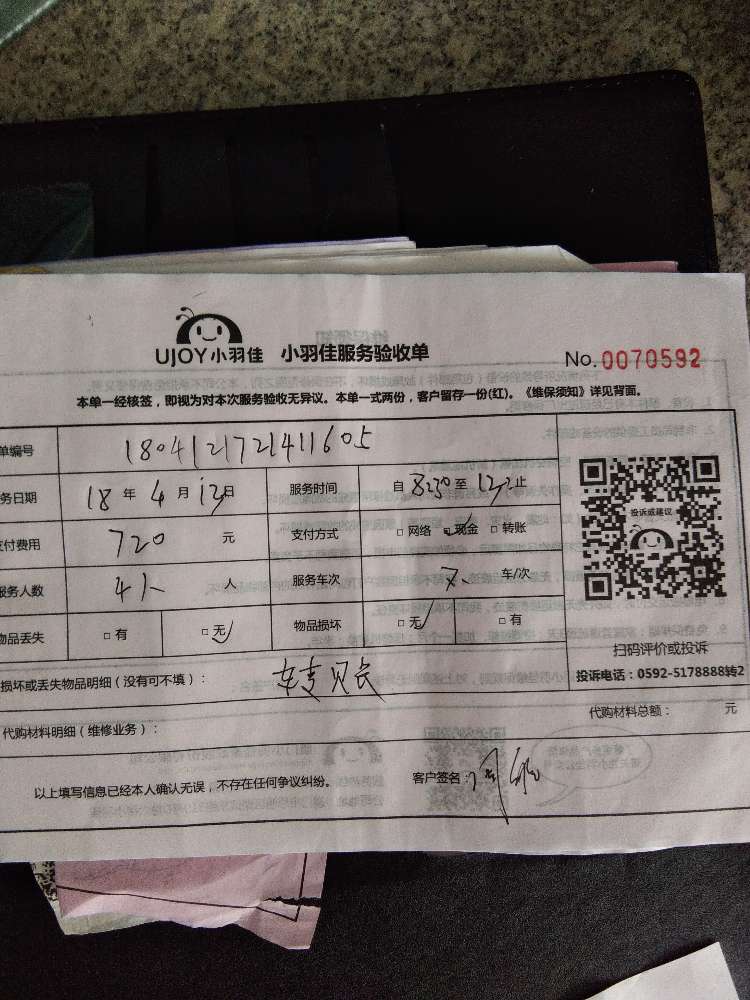 UJOY小羽佳 小羽佳服务验收单 No.0070592
本单一经核签，即视为对本次服务验收无异议。本单一式两份，客户留存一份(红)。《维保须知》详见背面。
单编号 180412172141605
务日期 18 年 4 月 13 日 服务时间 自 8:30 至 12 止
支付费用 720 元 支付方式 □ 网络 □ 现金 □ 转账
服务人数 4人 人 服务车次 车/次
物品丢失 □ 有 □ 无 物品损坏 □ 无 □ 有
投诉或建议
扫码评价或投诉
投诉电话：0592-5178888转2
损坏或丢失物品明细（没有可不填）：
代购材料明细（维修业务）： 代购材料总额： 元
以上填写信息已经本人确认无误，不存在任何争议纠纷。 客户签名：